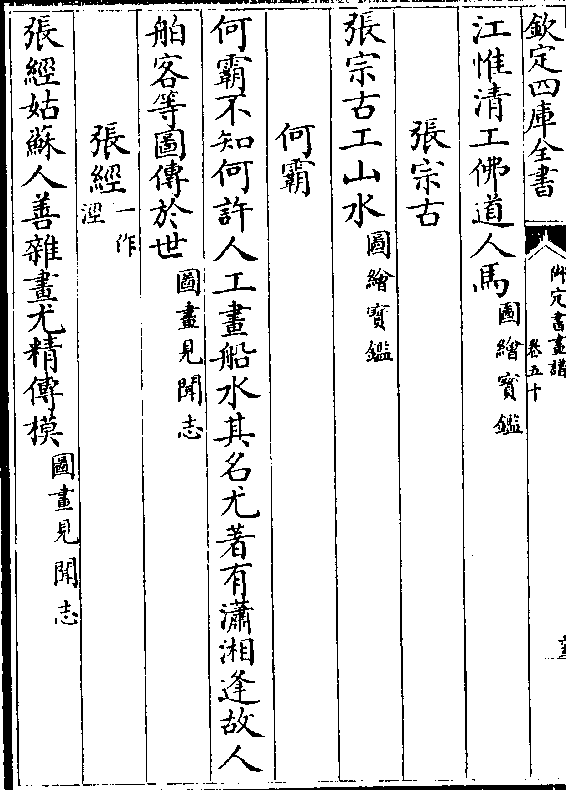 欽定四庫全書
御定書畫譜
卷五十
江惟清工佛道人馬圖繪寳鑑
張宗古
張宗古工山水圖繪寳鑑
何霸
何霸不知何許人工畫船水其名尤著有瀟湘逢故人
舶客等圖傳於世圖畫見聞志
張經一作涇
張經姑蘇人善雜畫尤精傳模圖畫見聞志